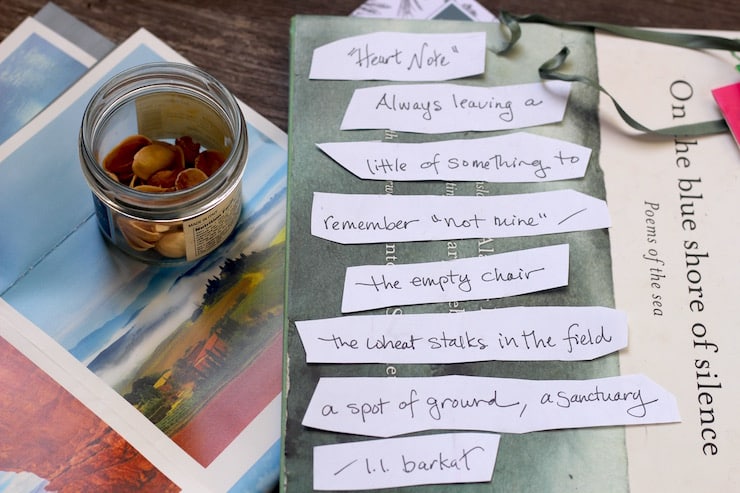 "Heart Note"
Always leaving a
little of something to
remember "not mine" /
the empty chair
the wheat stalks in the field
a spot of ground, a sanctuary
/ l.l. barkat
On the blue shore of silence
Poems of the sea